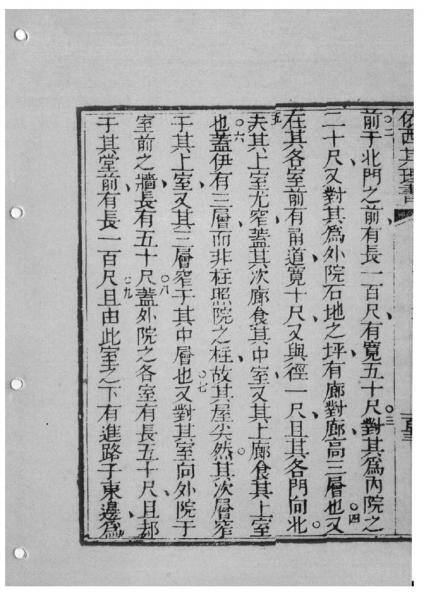 依西其理書
○二前于北門之前有長一百尺有寬五十尺○三對其爲內院之
二十尺又對其爲外院石地之坪有廊對廊高三層也○四又
在其各室前有甬道寬十尺又與徑一尺且其各門向北○
五夫其上室尤窄蓋其次廊食其中室又其上廊食其上室
也○六蓋伊有三層而非柱照院之柱故其屋尖然其次層窄
于其上室又其三層窄于其中層也○七又對其室向外院于
室前之牆長有五十尺○八蓋外院之各室有長五十尺且却
于其堂前有長一百尺○九且由此室之下有進路于東邊爲